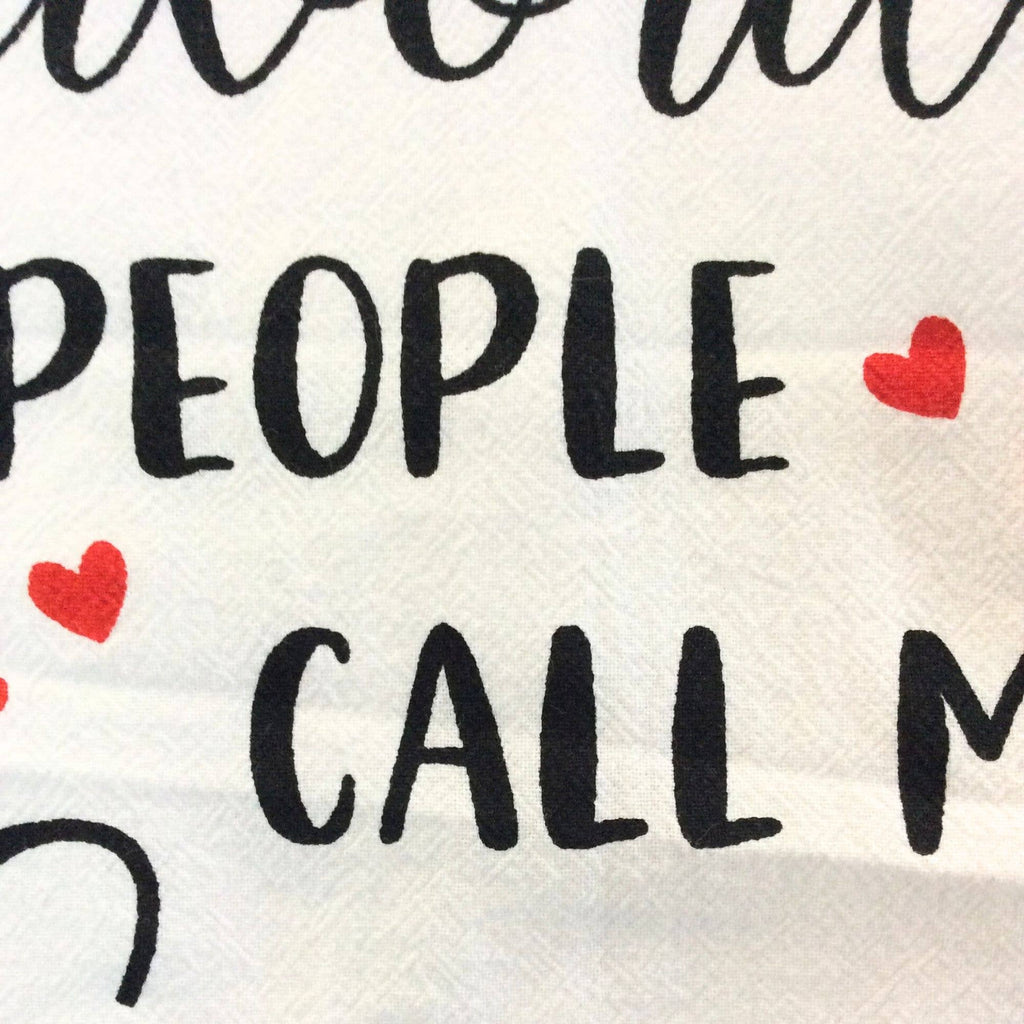 PEOPLE
CALL M